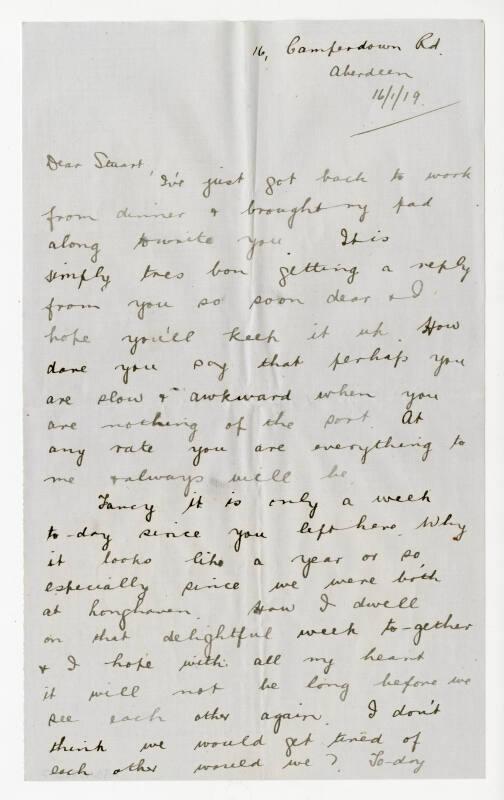 16, Camperdown Rd.
Aberdeen
16/1/19.
Dear Stuart,
I've just got back to work
from dinner & brought my pad
along to write you. It is
simply tres bon getting a reply
from you so soon dear & I
hope you'll keep it up. How
dare you say that perhaps you
are slow & awkward when you
are nothing of the sort. At
any rate you are everything to
me & always will be.
Fancy it is only a week
to-day since you left here. Why
it looks like a year or so,
especially since we were both
at Longhaven. How I dwell
on that delightful week to-gether
& I hope with all my heart
it will not be long before we
see each other again. I don't
think we would get tired of
each other would we? To-day